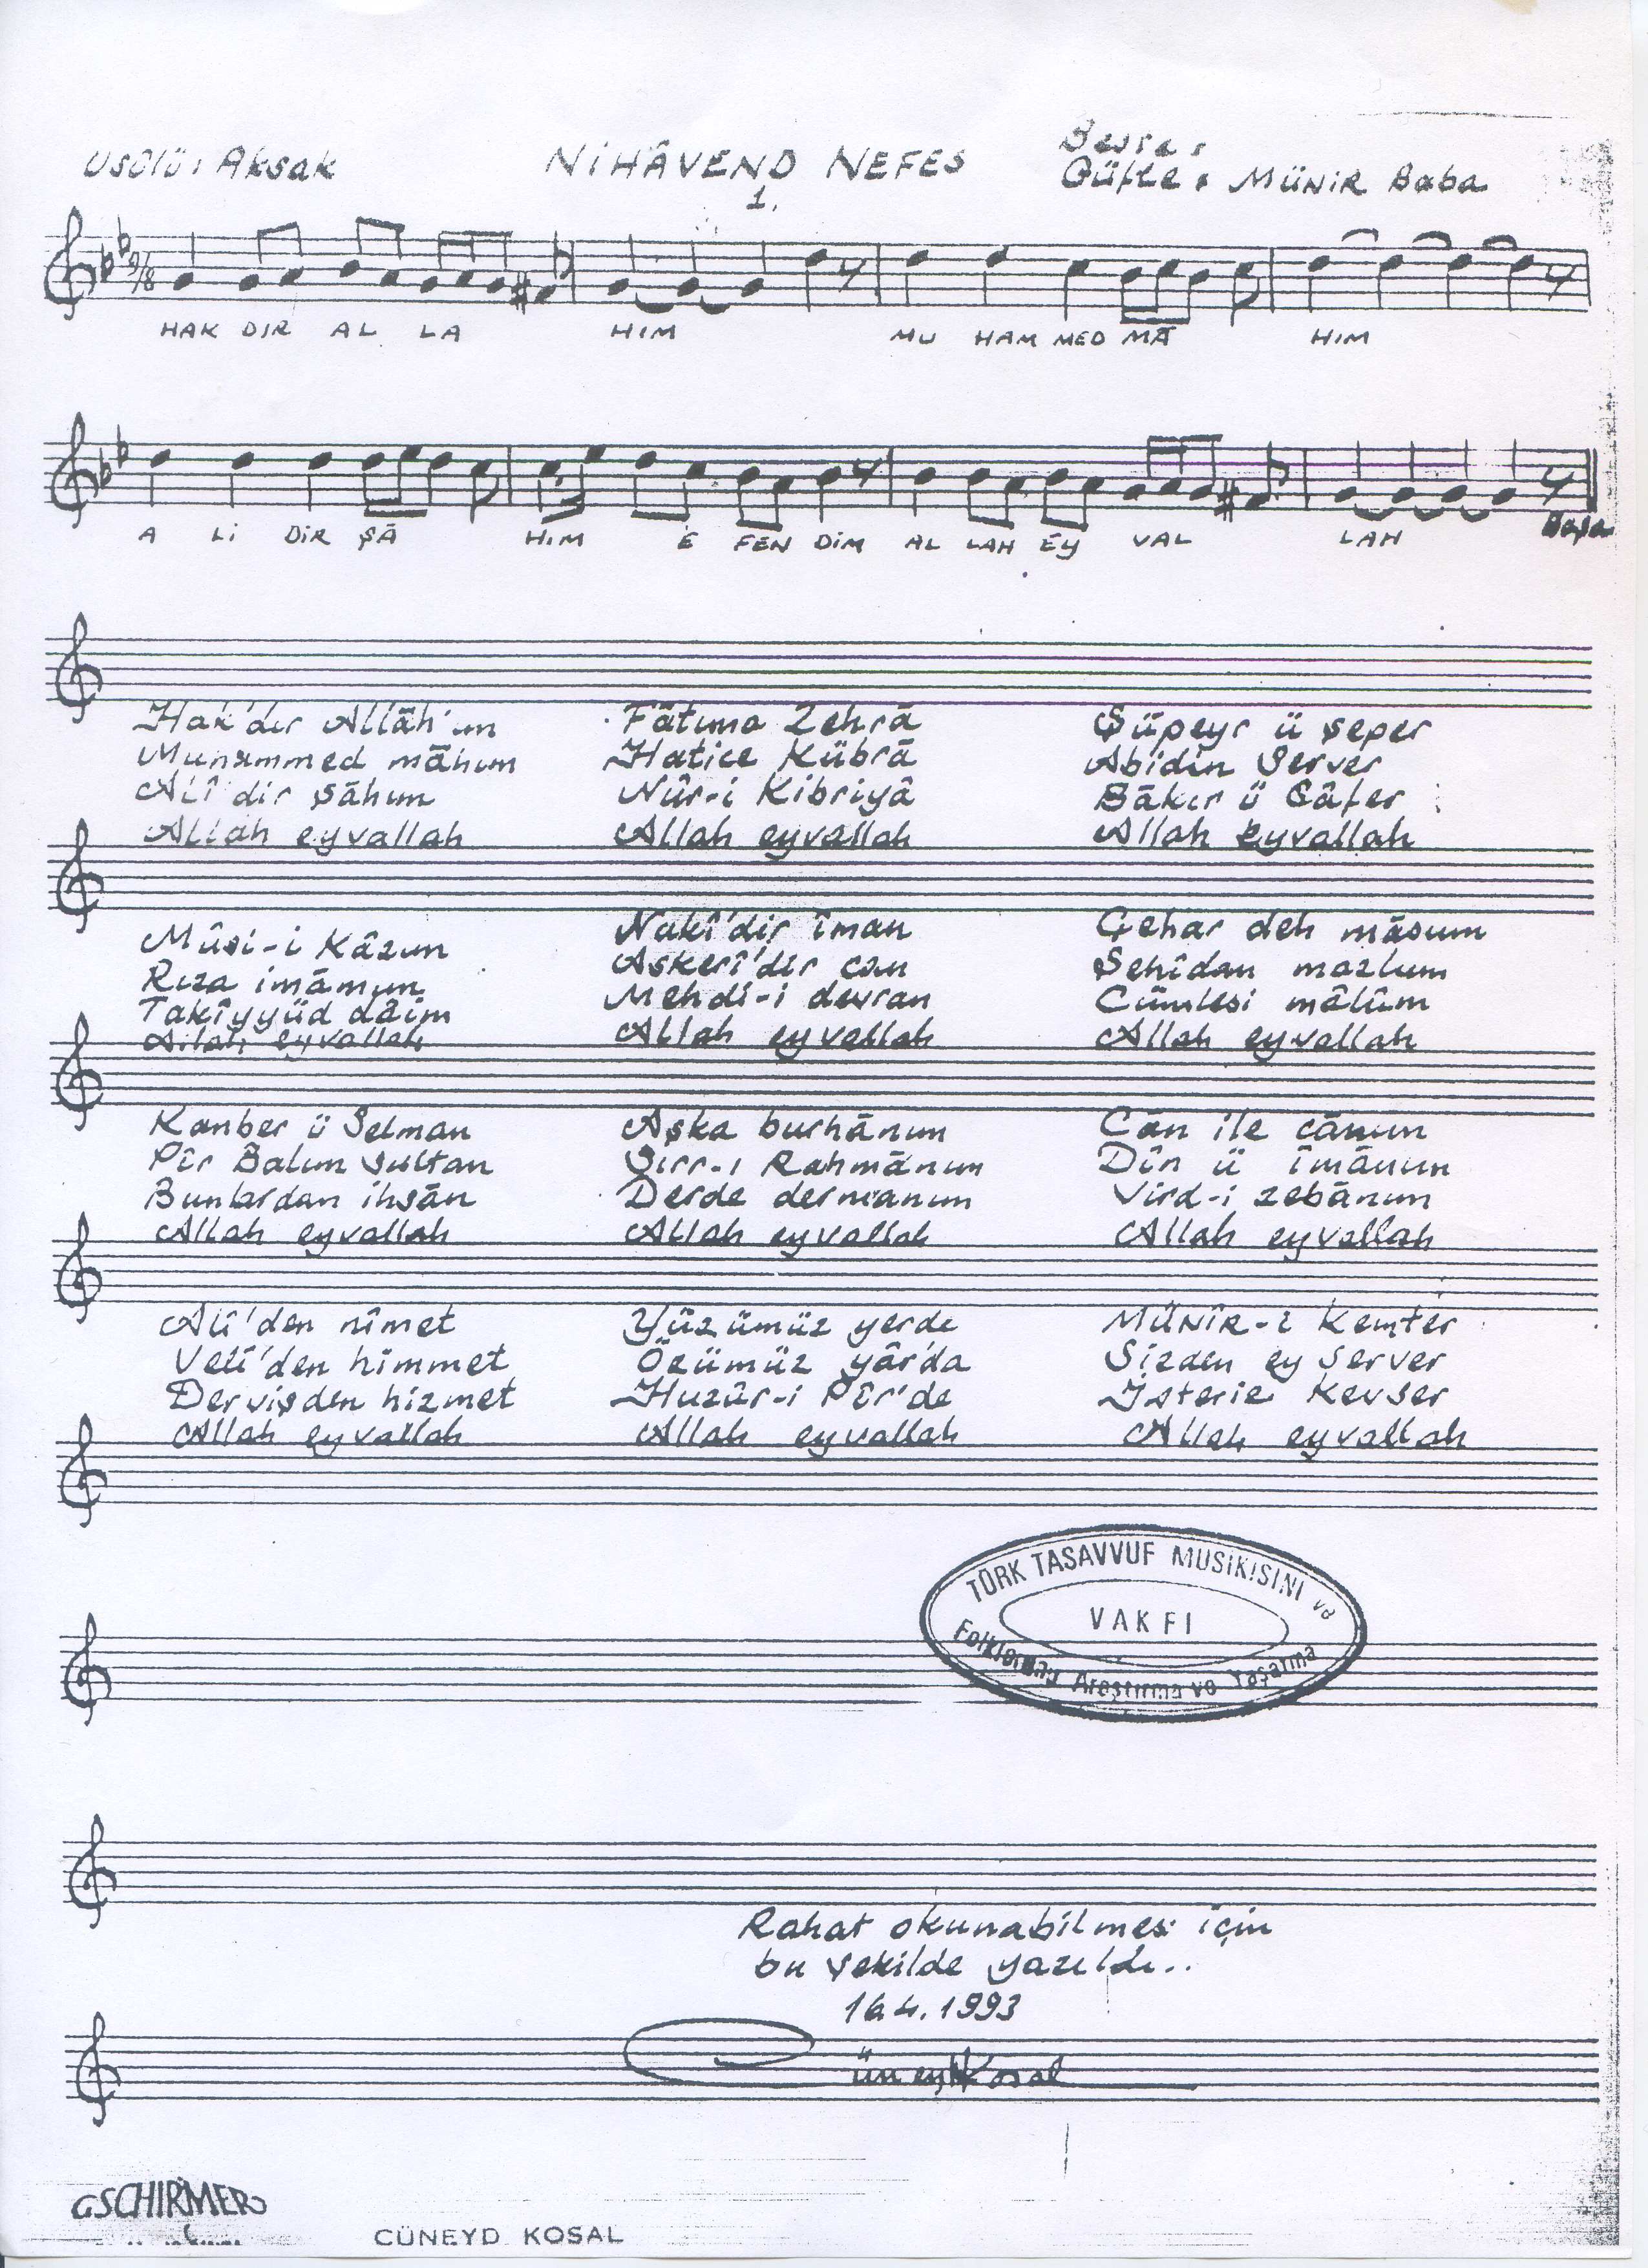 Usûlü: Aksak
NiHÂVEND NEFES
Beste:
Güfte: MÜNiR Baba
1.
9/8
HAK DIR AL LA HIM MU HAM MED MÂ HIM
A Li DiR ŞÂ HIM E FEN DiM AL LAH EY VAL LAH
Hak'dır Allâh'ım
Muhammed mâhım
Alî'dir şâhım
Allah eyvallah
Fâtıma Zehrâ
Hatice Kübrâ
Nûr-i Kibriyâ
Allah eyvallah
Şüpeyr ü şeper
Abidin Server
Bâkır ü Câfer
Allah eyvallah
Mûsi-i Kâzım
Rıza imâmım
Takîyyüd dâim
Allah eyvallah
Nakî'dir îman
Askerî'dir can
Mehdî-i devran
Allah eyvallah
Çehar deh mâsum
Şehîdan mazlum
Cümlesi mâlûm
Allah eyvallah
Kanber ü Selman
Pîr Balım Sultan
Bunlardan ihsân
Allah eyvallah
Aşka burhânım
Sırr-ı Rahmânım
Derde dermanım
Allah eyvallah
Cân ile cânım
Dîn ü îmânım
Vird-i zebânım
Allah eyvallah
Alî'den nîmet
Velî'den himmet
Dervişden hizmet
Allah eyvallah
Yüzümüz yerde
Özümüz yâr'da
Huzûr-i Pîr'de
Allah eyvallah
MÜNÎR-i Kemter
Sizden ey Server
İsterir Kevser
Allah eyvallah
TÜRK TASAVVUF MUSiKiSiNi ve
VAKFI
Folklorunu Araştırma ve Yaşatma
Rahat okunabilmesi için
bu şekilde yazıldı..
16.4.1993
Cüneyd Kosal
G SCHIRMER
CÜNEYD KOSAL